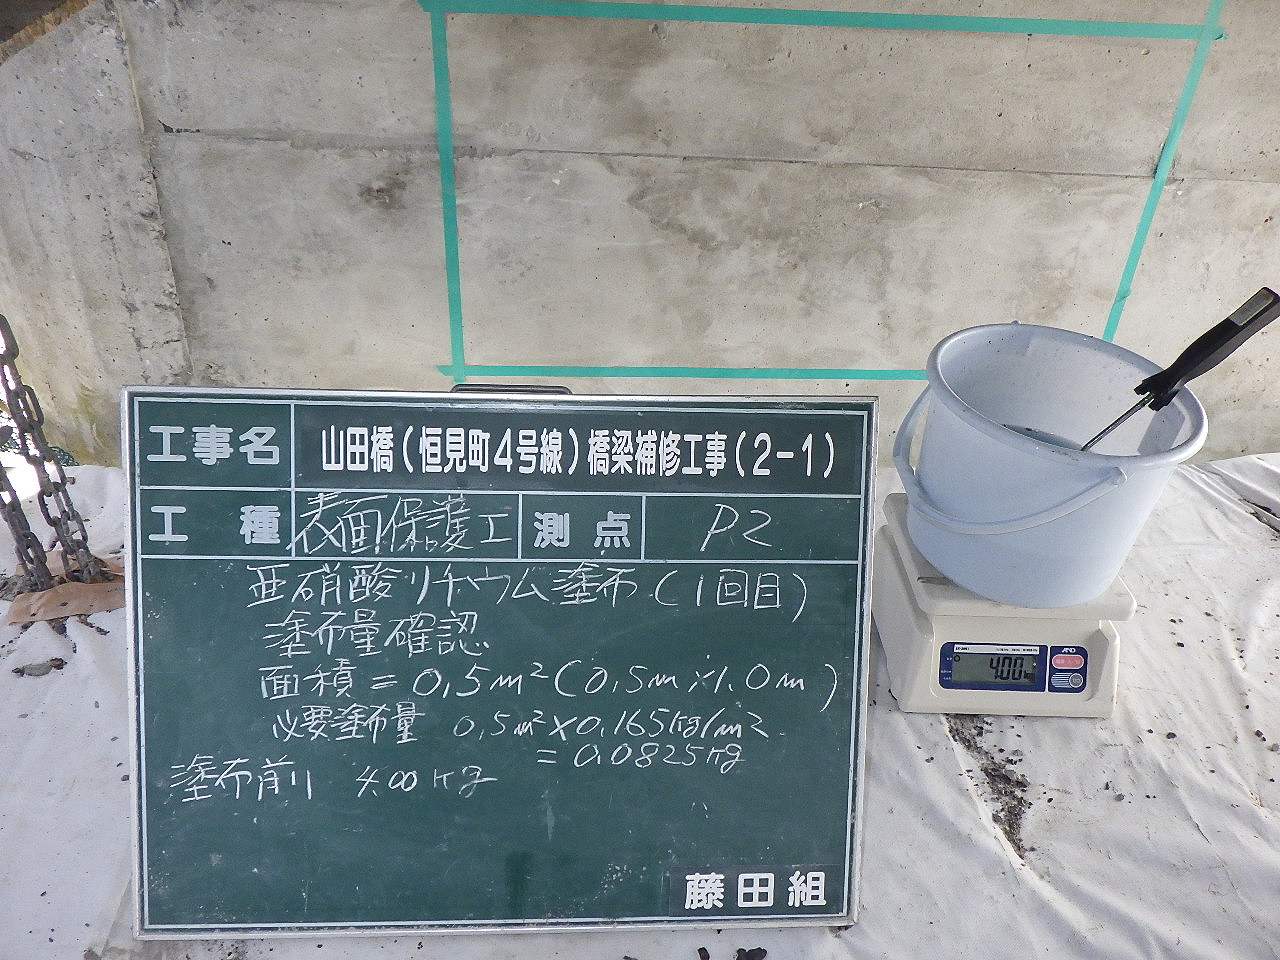 工事名 山田橋(恒見町4号線)橋梁補修工事(2-1)
工種 表面保護工 測点 P2
亜硝酸リチウム塗布(1回目)
塗布量確認
面積=0.5m²(0.5m×1.0m)
必要塗布量 0.5m²×0.165kg/m²
=0.0825kg
塗布前 4.00kg
藤田組
AND
4.00